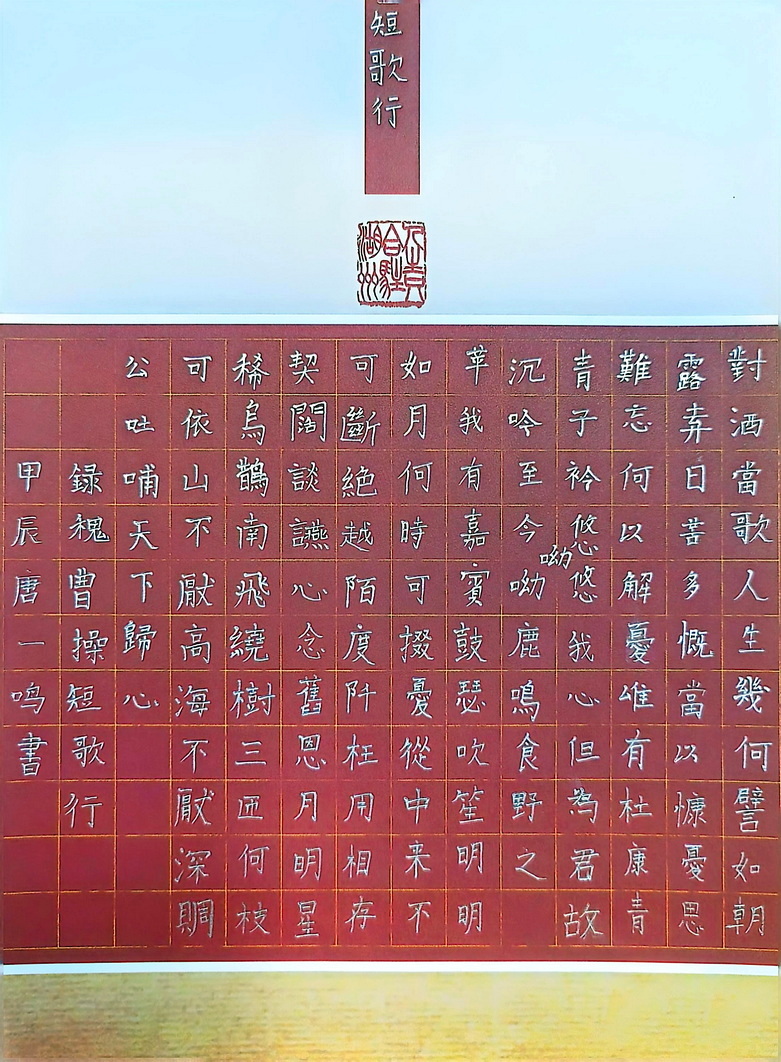 短歌行
對酒當歌人生幾何譬如朝
露去日苦多慨當以慷憂思
難忘何以解憂唯有杜康青
青子衿悠悠我心但為君故
沉吟至今呦呦鹿鳴食野之
苹我有嘉賓鼓瑟吹笙明明
如月何時可掇憂從中来不
可斷絕越陌度阡枉用相存
契闊談讌心念舊恩月明星
稀烏鵲南飛繞樹三匝何枝
可依山不厭高海不厭深賙
公吐哺天下歸心
録魏曹操短歌行
甲辰唐一鸣書